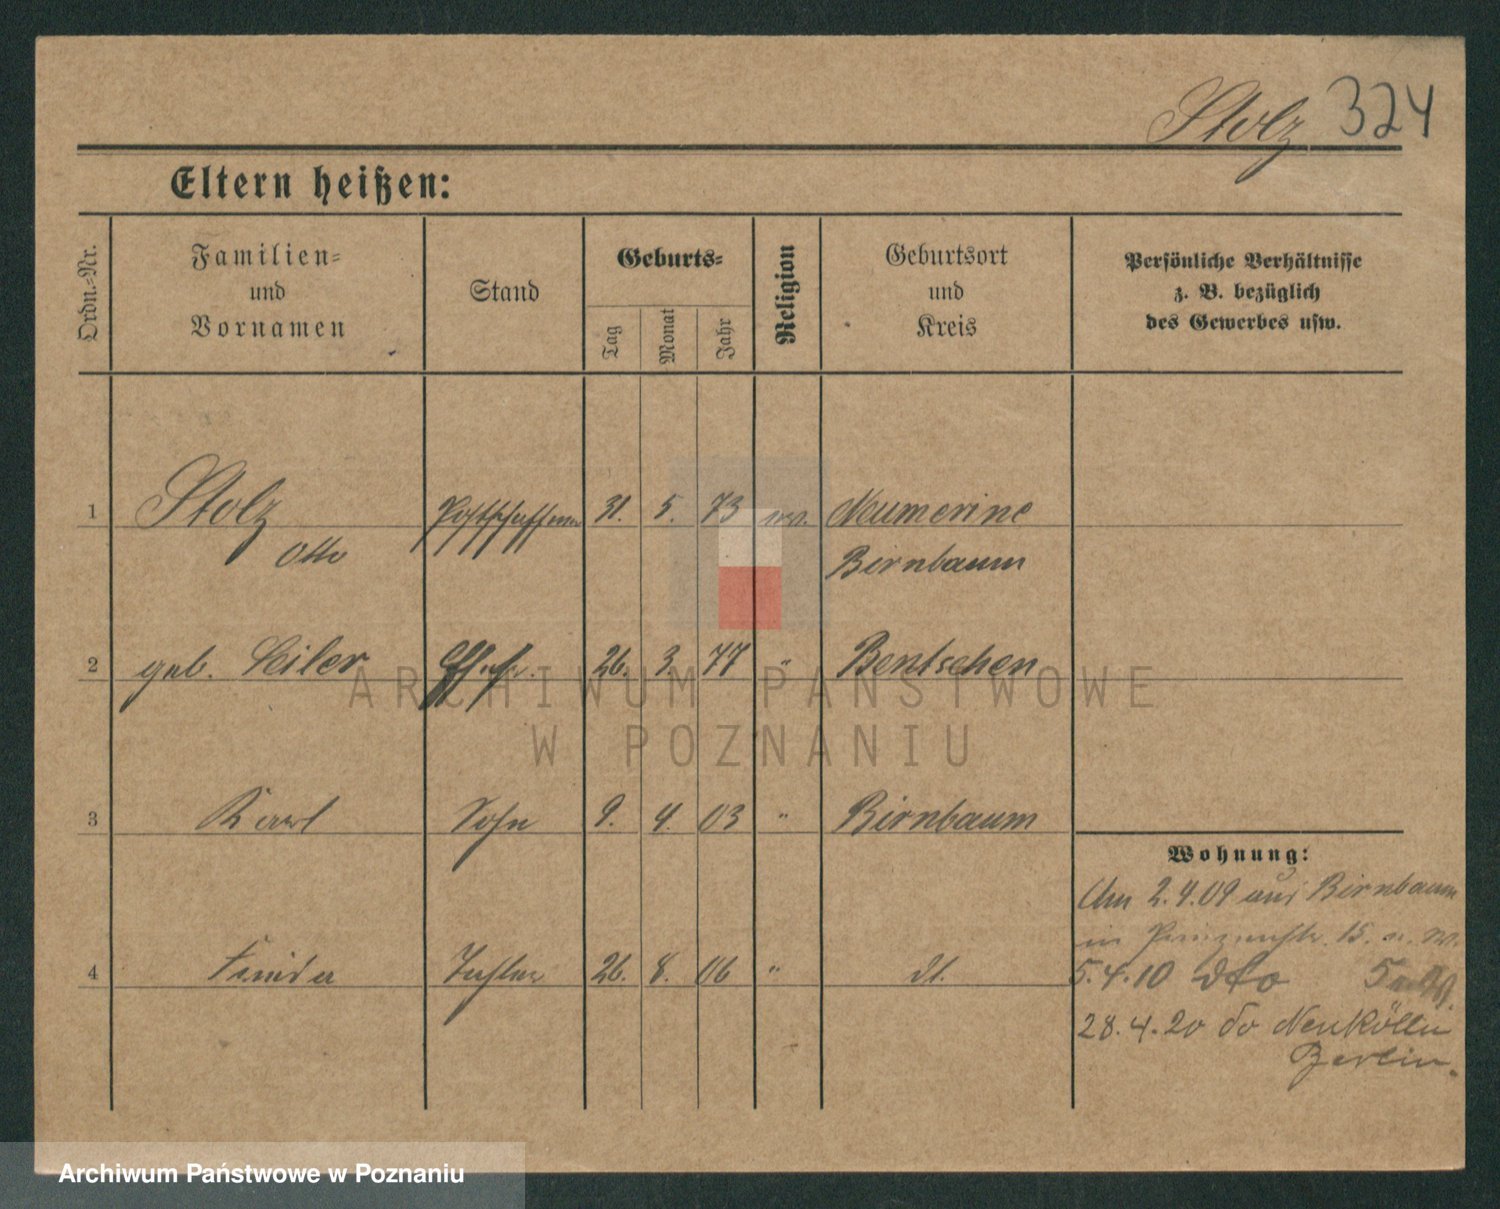 Stolz 324
Eltern heißen:
Ordn.-Nr.
Familien-
und
Vornamen
Stand
Geburts-
Tag
Monat
Jahr
Religion
Geburtsort
und
Kreis
Persönliche Verhältnisse
z. B. bezüglich
des Gewerbes usw.
1 Stolz Postschaffner 31. 5. 73 ev. Neumerine
Otto Birnbaum
2 geb. Seiler Ehefr. 26. 3. 77 " Bentschen
ARCHIWUM PAŃSTWOWE
W POZNANIU
3 Karl Sohn 9. 4. 03 " Birnbaum
4 Tochter 26. 8. 06 " dt.
Wohnung:
Am 2.4.09 aus Birnbaum
in Prinzenstr. 15. n. W.
5.4.10 dto 5
28.4.20 do Neukölln
Berlin.
Archiwum Państwowe w Poznaniu